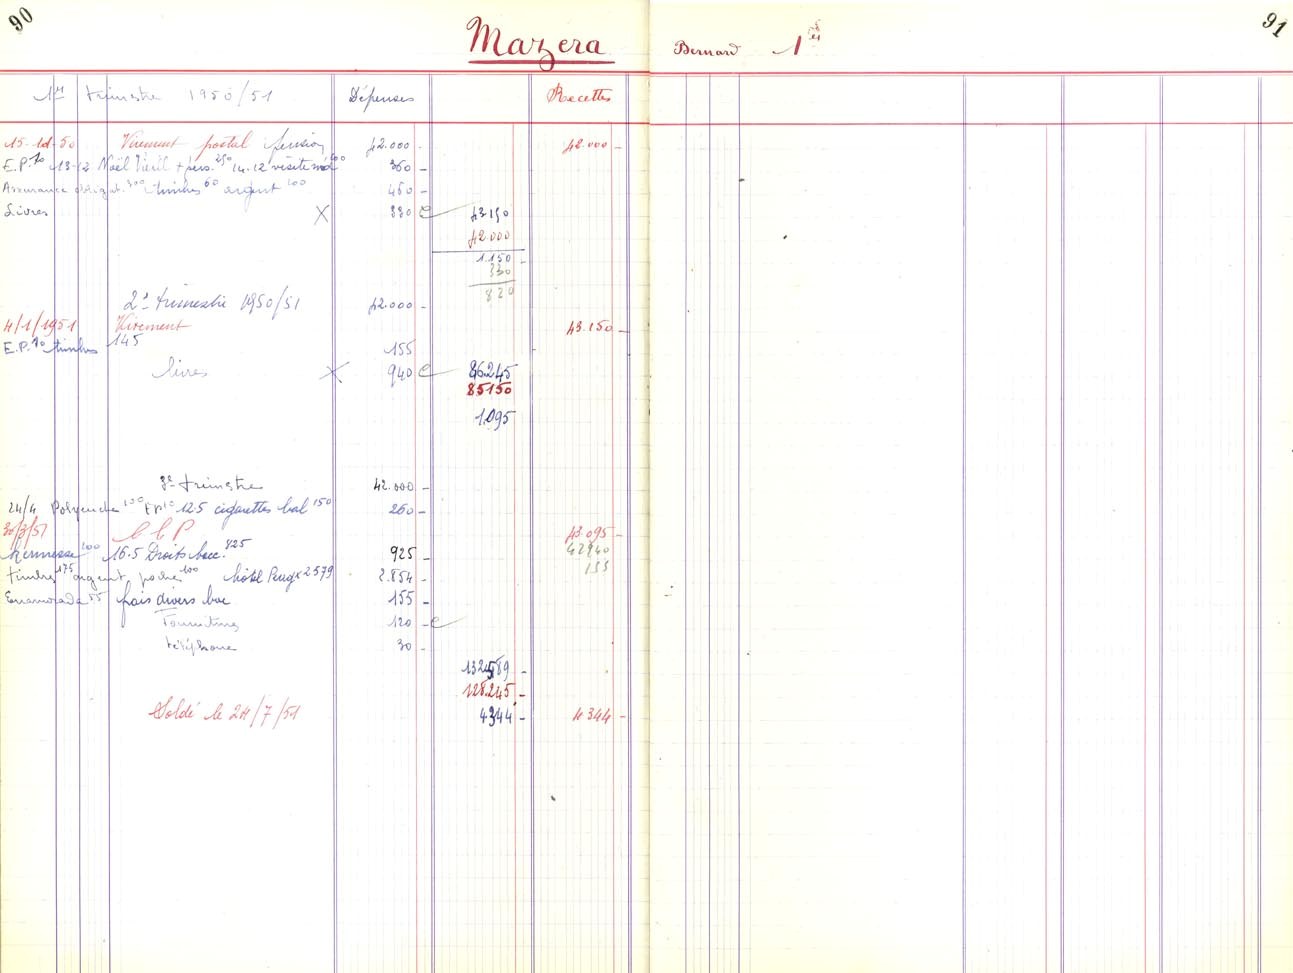 90
Mazera
Bernard 1ère S
91
1er trimestre 1950/51 Dépenses Recettes
15-10-50 Virement postal pension 42.000 - 42.000 -
E.P. 10 13-12 Noël Vieil + pers. 250 14.12 visite méd 100 360 -
Assurance obligat. 300 timbres 60 argent 100 460 -
Livres X 330 e 43150
42.000
1.150 -
330
820
2e trimestre 1950/51 42.000 -
4/1/1951 Virement 43.150 -
E.P. 10 timbres 145 155
livres X 940 e 86.245
85150
1.095
3e trimestre 42.000 -
24/4 100 EP 10 125 cigarettes bal 150 260 -
30/3/51 C C P 43.095 -
Kermesse 100 16.5 Droits bacc. 825 925 - 42940
155
timbres 175 argent poche 100 hôtel 2579 2.854 -
55 frais divers bac 155 -
Fournitures 120 - e
téléphone 30 -
132589 -
128.245 -
Soldé le 24/7/51 4344 - 4344 -